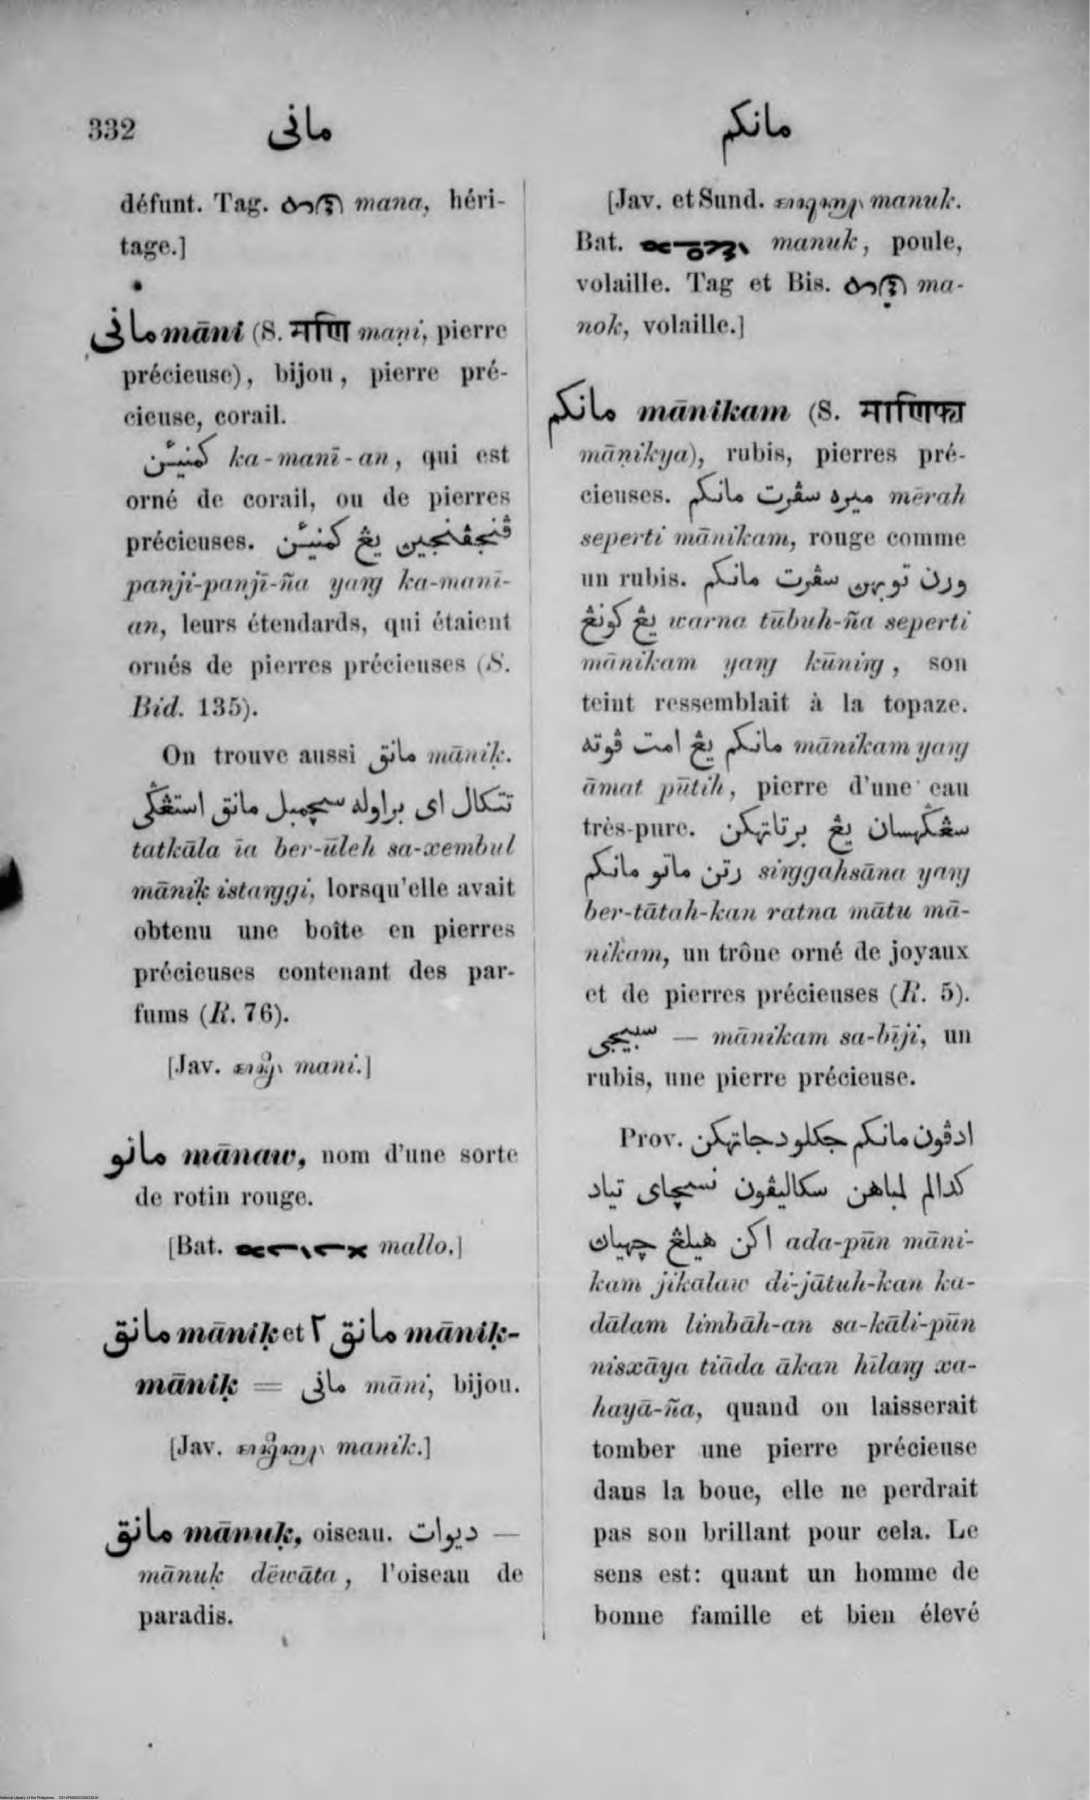 332
مانى
مانكم
défunt. Tag. mana, héri-
tage.]
مانى māni (S. मणि maṇi, pierre
précieuse), bijou, pierre pré-
cieuse, corail.
كمنيئن ka-manī-an, qui est
orné de corail, ou de pierres
précieuses. ڤنجڤنجين يڠ كمنيئن
panji-panjī-ña yaŋg ka-manī-
an, leurs étendards, qui étaient
ornés de pierres précieuses (S.
Bid. 135).
On trouve aussi مانق māniḳ.
تتكال اى براوله سچمبل مانق استڠݢى
tatkāla īa ber-ūleh sa-xembul
māniḳ istaŋggi, lorsqu'elle avait
obtenu une boîte en pierres
précieuses contenant des par-
fums (R. 76).
[Jav. mani.]
مانو mānaw, nom d'une sorte
de rotin rouge.
[Bat. mallo.]
مانق māniḳ et مانق ٢ māniḳ-
māniḳ = مانى māni, bijou.
[Jav. manik.]
مانق mānuḳ, oiseau. ديوات —
mānuḳ dēwāta, l'oiseau de
paradis.
[Jav. et Sund. manuk.
Bat. manuk, poule,
volaille. Tag et Bis. ma-
nok, volaille.]
مانكم mānikam (S. माणिक्य
māṇikya), rubis, pierres pré-
cieuses. ميره سڤرت مانكم mērah
seperti mānikam, rouge comme
un rubis. ورن توبهن سڤرت مانكم
يڠ كونڠ warna tūbuh-ña seperti
mānikam yaŋg kūniŋg, son
teint ressemblait à la topaze.
مانكم يڠ امت ڤوته mānikam yaŋg
āmat pūtih, pierre d'une eau
très-pure. سڠݢهسان يڠ برتاتهكن
رتن ماتو مانكم siŋggahsāna yaŋg
ber-tātah-kan ratna mātu mā-
nikam, un trône orné de joyaux
et de pierres précieuses (R. 5).
سبيجى — mānikam sa-bīji, un
rubis, une pierre précieuse.
Prov. ادڤون مانكم جكلو دجاتهكن
كدالم لمباهن سكاليڤون نسچاى تياد
اكن هيلڠ چهيان ada-pūn māni-
kam jikalaw di-jātuh-kan ka-
dālam limbāh-an sa-kāli-pūn
nisxāya tiāda ākan hīlaŋg xa-
hayā-ña, quand on laisserait
tomber une pierre précieuse
dans la boue, elle ne perdrait
pas son brillant pour cela. Le
sens est: quant un homme de
bonne famille et bien élevé